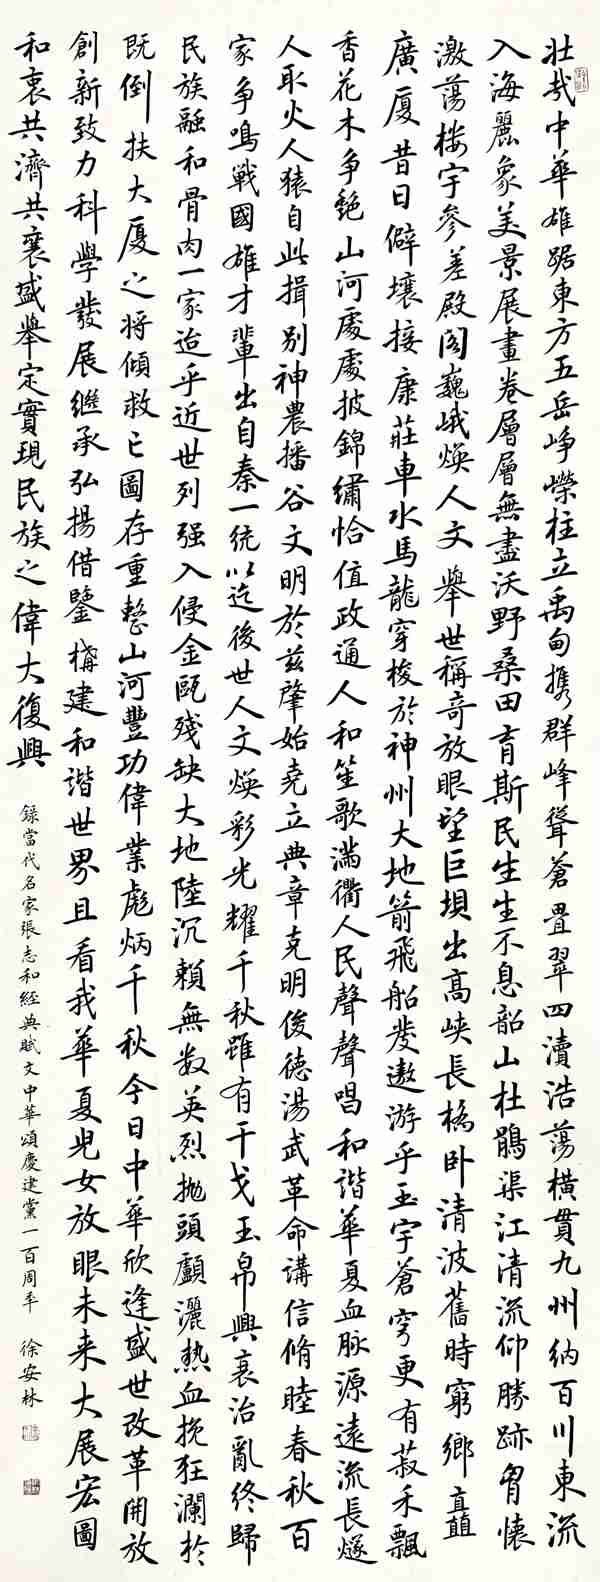 壯哉中華雄踞東方五岳崢嶸柱立禹甸攜群峰聳蒼疊翠四瀆浩蕩橫貫九州納百川東流
入海麗象美景展畫卷層層無盡沃野桑田育斯民生生不息韶山杜鵑渠江清流仰勝跡胷懷
激蕩楼宇參差殿阁巍峨煥人文舉世稱奇放眼望巨壩出高峽長橋卧清波舊時窮鄉矗
廣厦昔日僻壤接康莊車水馬龍穿梭於神州大地箭飛船發遨游乎玉宇蒼穹更有菽禾飄
香花木争艷山河處處披錦繡恰值政通人和笙歌滿衢人民聲聲唱和諧華夏血脉源遠流長燧
人取火人猿自此揖别神農播谷文明於兹肇始堯立典章克明俊德湯武革命講信脩睦春秋百
家争鳴戰國雄才輩出自秦一統以迄後世人文煥彩光耀千秋雖有干戈玉帛興衰治亂終歸
民族融和骨肉一家迨乎近世列强入侵金甌殘缺大地陸沉賴無数英烈抛頭顱灑熱血挽狂瀾於
既倒扶大厦之将傾救亡圖存重整山河豐功偉業彪炳千秋今日中華欣逢盛世改革開放
創新致力科學發展繼承弘揚借鑒構建和諧世界且看我華夏兒女放眼未来大展宏圖
和衷共濟共襄盛舉定實現民族之偉大復興
錄當代名家張志和經典賦文中華頌慶建黨一百周年 徐安林